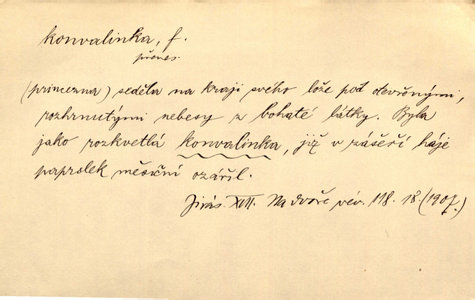 konvalinka, f.
přenes.
(princezna) seděla na kraji svého lože pod červenými,
rozhrnutými nebesy z bohaté látky. Byla
jako rozkvetlá konvalinka, již v zášeří háje
paprslek měsíční ozářil.
Jirás. XIII. Na dvoře vév. 118. 18 (1907)